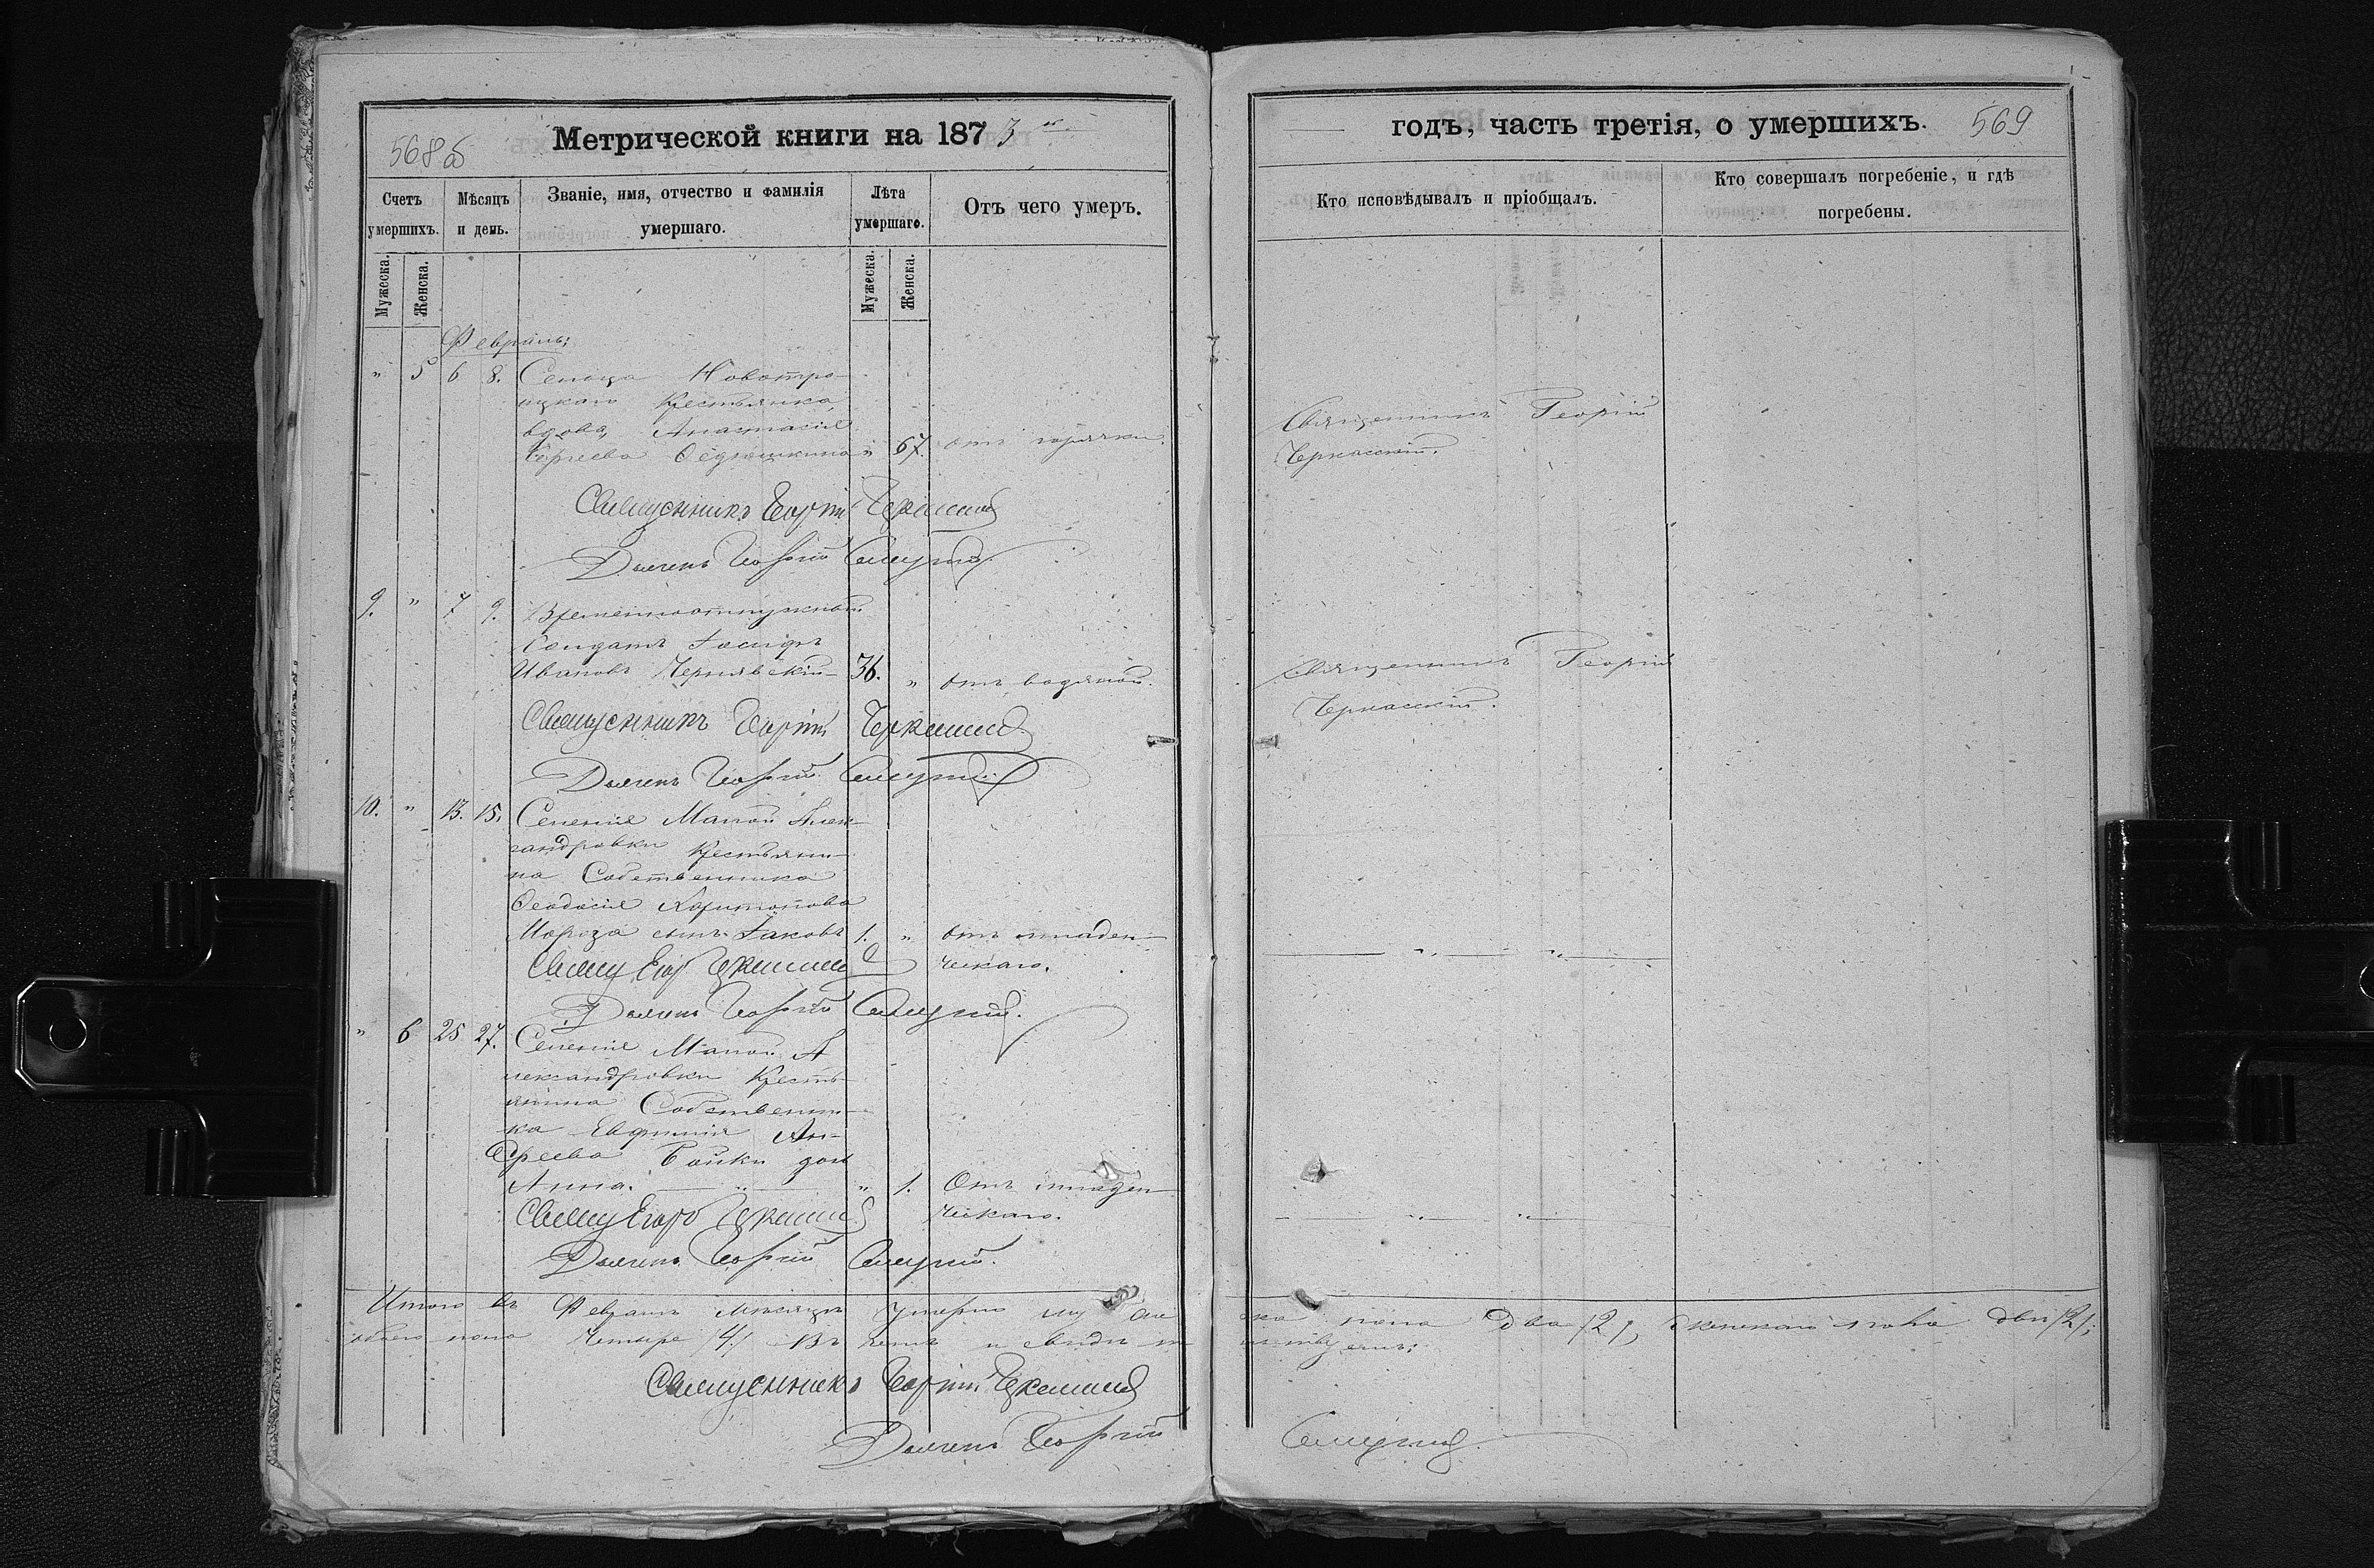 568 об
Метрической книги на 1873 го
Счетъ умершихъ.
Мѣсяцъ и день.
Званіе, имя, отчество и фамилія умершаго.
Лѣта умершаго.
Отъ чего умеръ.
Мужеска.
Женска.
Мужеска.
Женска.
Февраль:
" 5 6 8. Сельца Новотро-
ицкаго Крестьянка,
вдова, Анастасія
Сергеева Федюшкина " 67. отъ горячки.
Священникъ Георгій Черкасскій
Дьячекъ Георгій
9. " 7 9. Временноотпускной
Солдатъ Іосифъ
Ивановъ Чернявскій 36. " отъ водяной.
Священникъ Георгій Черкасскій
Дьячекъ Георгій
10. " 13. 15. Селенія Малой Алек-
сандровки Крестьяни-
на Собственника
Феодосія Харитонова
Мороза сынъ Іаковъ 1. " отъ младен-
ческаго.
Свящ Егор Черкасскій
Дьячекъ Георгій
" 6 25 27. Селенія Малой А
лександровки Кресть-
янина Собственни-
ка Евфимія Ан-
дреева Бойки дочь
Анна. " " 1. Отъ младен
ческаго.
Свящ Егоръ Черкасскій
Дьячекъ Георгій
Итого въ Февралѣ мѣсяцѣ умерло муже
обоего пола Четыре /4/. Въ чемъ и свидѣте
Священникъ Георгій Черкасскій
Дьячекъ Георгій
годъ, часть третія, о умершихъ.
569
Кто исповѣдывалъ и пріобщалъ.
Кто совершалъ погребеніе, и гдѣ погребены.
Священникъ Георгій
Черкасскій.
Священникъ Георгій
Черкасскій.
" "
" "
ска пола два /2/, женскаго пола двѣ /2/;
льствуемъ: